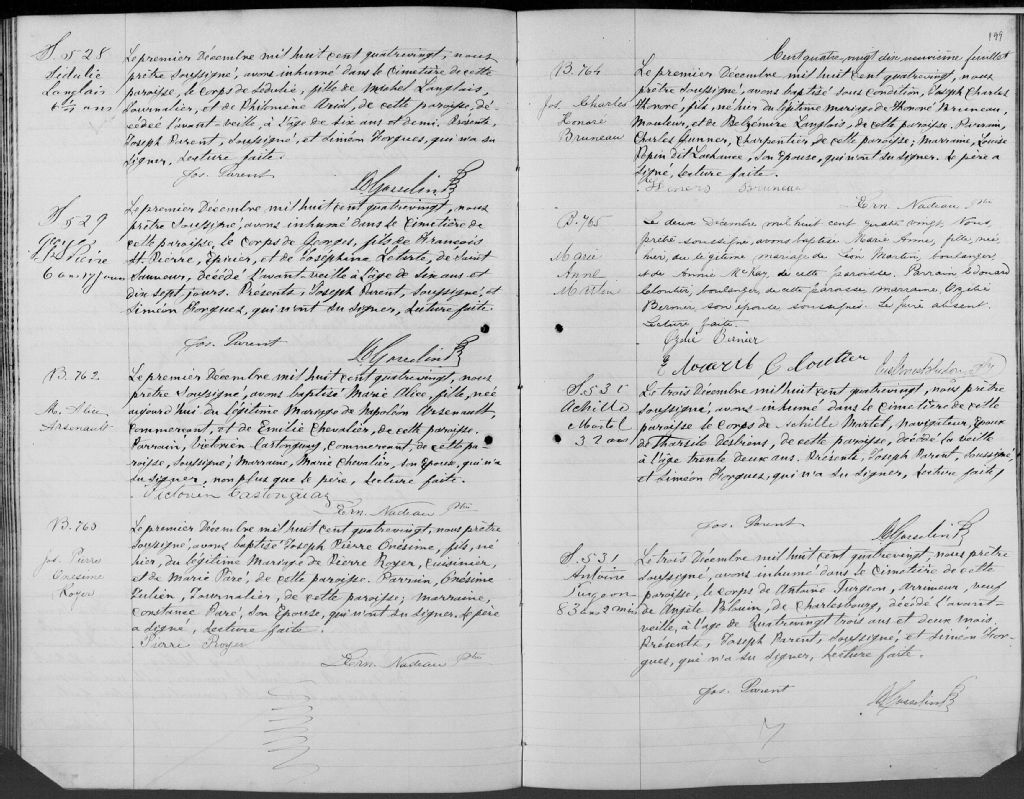 S. 528
Sidulie
Langlais
6½ ans
Le premier Décembre mil huit cent quatrevingt, nous
prêtre soussigné, avons inhumé dans le Cimetière de cette
paroisse, le corps de Sédulie, fille de Michel Langlais,
Journalier, et de Philomène Arial, de cette paroisse, dé-
cédée l'avant-veille, à l'âge de six ans et demi. Présents,
Joseph Parent, soussigné, et Siméon Horgues, qui n'a su
signer, Lecture faite.
Jos. Parent
Gosselin Ptr
S. 529
St. Pierre
6 ans 17 jours
Le premier Décembre mil huit cent quatrevingt, nous
prêtre soussigné, avons inhumé dans le Cimetière de
cette paroisse, le corps de Georges, fils de François
St. Pierre, Epicier, et de Joséphine Letarte, de Saint
Sauveur, décédé l'avant-veille à l'âge de six ans et
dix sept jours. Présents, Joseph Parent, soussigné, et
Siméon Horgues, qui n'ont su signer, Lecture faite.
Jos. Parent
Gosselin Ptr
B. 762
M. Alice
Arsenault
Le premier Décembre mil huit cent quatrevingt, nous
prêtre soussigné, avons baptisé Marie Alice, fille, née
aujourd'hui du légitime Mariage de Napoléon Arsenault,
Commerçant, et de Emilie Chevalier, de cette paroisse.
Parrain, Castonguay, Commerçant de cette pa-
roisse, soussigné; Marraine, Marie Chevalier, son Epouse, qui n'a
su signer, non plus que le père, Lecture faite.
Castonguay
Fern. Nadeau Ptre
B. 763
Jos. Pierre
Onésime
Royer
Le premier Décembre mil huit cent quatrevingt, nous prêtre
soussigné, avons baptisé Joseph Pierre Onésime, fils, né
hier, du légitime Mariage de Pierre Royer, Cuisinier,
et de Marie Paré, de cette paroisse. Parrain, Onésime
Julien, Journalier, de cette paroisse; marraine,
Constance Paré, son Epouse, qui n'ont su signer. Le père
a signé, Lecture faite.
Pierre Royer
Fern. Nadeau Ptre
199
Cent quatre vingt dix neuvième feuillet
B. 764
Jos. Charles
Honoré
Bruneau
Le premier Décembre mil huit cent quatrevingt, nous
prêtre soussigné, avons baptisé sous condition, Joseph Charles
Honoré, fils, né hier du légitime mariage de Honoré Bruneau,
Mouleur, et de Belzémire Langlois, de cette paroisse. Parrain,
Charles Gunner, Charpentier, de cette paroisse; Marraine, Louise
Pépin dit Lachance, son Epouse, qui n'ont su signer. Le père a
signé, Lecture faite.
Honoré Bruneau
Fern. Nadeau Ptre
B. 765
Marie
Anne
Martin
Le deux Décembre mil huit cent quatre vingt, Nous
prêtre soussigné, avons baptisé Marie Anne, fille, née
hier, du légitime mariage de Léon Martin, boulanger,
et de Annie McKay, de cette paroisse. Parrain Edouard
Cloutier, boulanger, de cette paroisse, marraine, Ozélie
Bernier, son épouse soussignés. Le père absent.
Lecture faite.
Ozélie Bernier
Edouard Cloutier
S. 530
Achille
Martel
32 ans
Le trois Décembre mil huit cent quatrevingt, nous prêtre
soussigné, avons inhumé dans le Cimetière de cette
paroisse le corps de Achille Martel, navigateur, Epoux
de Tharsile Desbiens, de cette paroisse, décédé la veille
à l'âge trente deux ans. Présents, Joseph Parent, soussigné,
et Siméon Horgues, qui n'a su signer, Lecture faite
Jos. Parent
Gosselin Ptr
S. 531
Antoine
Turgeon
83 ans 2 mois
Le trois Décembre mil huit cent quatrevingt, nous prêtre
soussigné, avons inhumé dans le Cimetière de cette
paroisse, le corps de Antoine Turgeon, Arrimeur, veuf
de Angèle, de Charlesbourg, décédé l'avant-
veille, à l'âge de Quatrevingt trois ans et deux mois.
Présents, Joseph Parent, soussigné, et Siméon Hor-
gues, qui n'a su signer, Lecture faite.
Jos. Parent
Gosselin Ptr